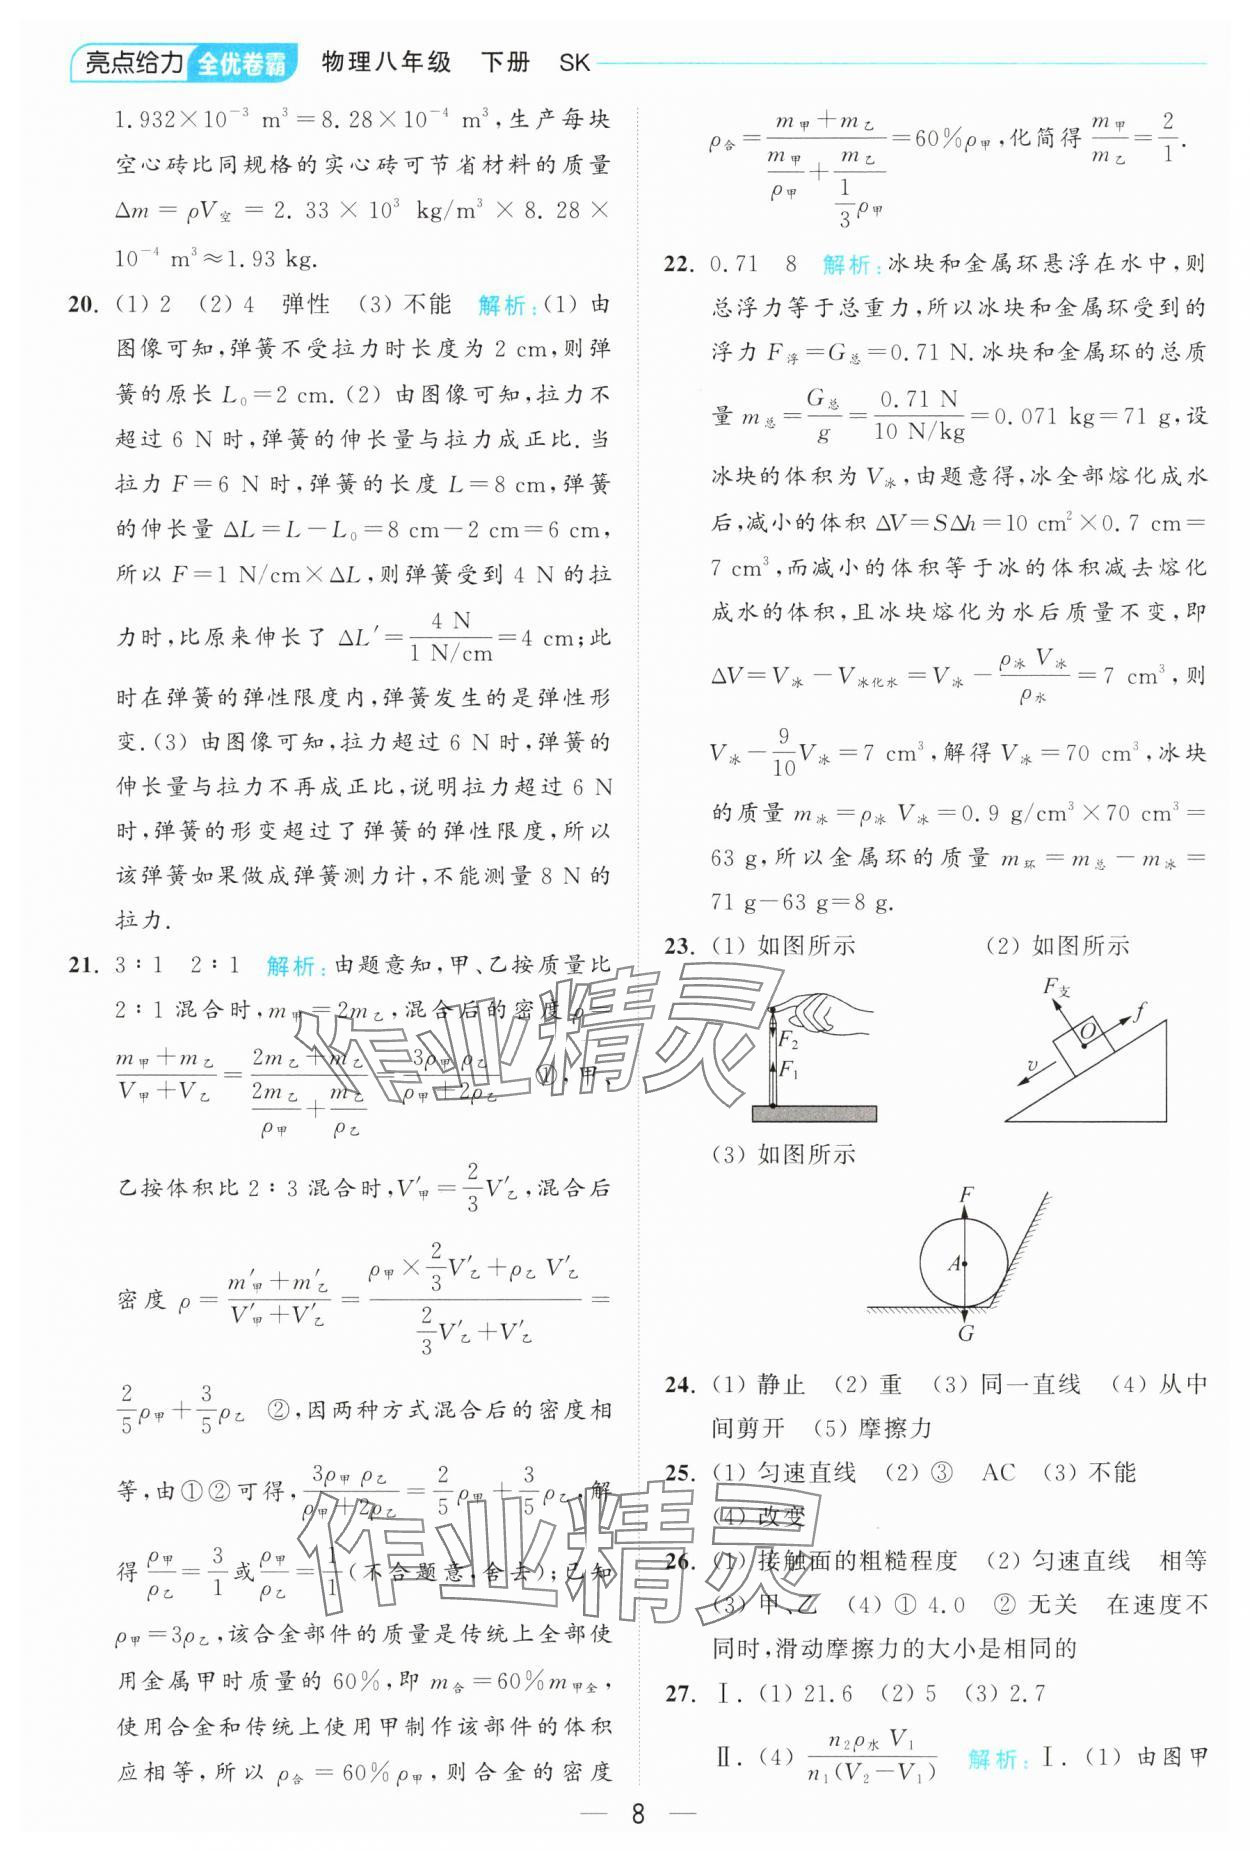 亮点给力 全优卷霸 物理八年级 下册 SK
1.932×10⁻³ m³=8.28×10⁻⁴ m³,生产每块
空心砖比同规格的实心砖可节省材料的质量
Δm=ρV空=2.33×10³ kg/m³×8.28×
10⁻⁴ m³≈1.93 kg.
20. (1)2 (2)4 弹性 (3)不能 解析:(1)由
图像可知,弹簧不受拉力时长度为2 cm,则弹
簧的原长L₀=2 cm.(2)由图像可知,拉力不
超过6 N时,弹簧的伸长量与拉力成正比.当
拉力F=6 N时,弹簧的长度L=8 cm,弹簧
的伸长量ΔL=L-L₀=8 cm-2 cm=6 cm,
所以F=1 N/cm×ΔL,则弹簧受到4 N的拉
力时,比原来伸长了ΔL′=4 N/(1 N/cm)=4 cm;此
时在弹簧的弹性限度内,弹簧发生的是弹性形
变.(3)由图像可知,拉力超过6 N时,弹簧的
伸长量与拉力不再成正比,说明拉力超过6 N
时,弹簧的形变超过了弹簧的弹性限度,所以
该弹簧如果做成弹簧测力计,不能测量8 N的
拉力.
21. 3∶1 2∶1 解析:由题意知,甲、乙按质量比
2∶1混合时,m甲=2m乙,混合后的密度ρ=
(m甲+m乙)/(V甲+V乙)=(2m乙+m乙)/(2m乙/ρ甲+m乙/ρ乙)=3ρ甲ρ乙/(ρ甲+2ρ乙) ①,甲、
乙按体积比2∶3混合时,V′甲=2/3V′乙,混合后
密度ρ=(m′甲+m′乙)/(V′甲+V′乙)=(ρ甲×2/3V′乙+ρ乙V′乙)/(2/3V′乙+V′乙)=
2/5ρ甲+3/5ρ乙 ②,因两种方式混合后的密度相
等,由①②可得,3ρ甲ρ乙/(ρ甲+2ρ乙)=2/5ρ甲+3/5ρ乙,解
得ρ甲/ρ乙=3/1或ρ甲/ρ乙=1/1(不合题意,舍去);已知
ρ甲=3ρ乙,该合金部件的质量是传统上全部使
用金属甲时质量的60%,即m合=60%m甲全,
使用合金和传统上使用甲制作该部件的体积
应相等,所以ρ合=60%ρ甲,则合金的密度
ρ合=(m甲+m乙)/(m甲/ρ甲+m乙/(1/3ρ甲))=60%ρ甲,化简得m甲/m乙=2/1.
22. 0.71 8 解析:冰块和金属环悬浮在水中,则
总浮力等于总重力,所以冰块和金属环受到的
浮力F浮=G总=0.71 N.冰块和金属环的总质
量m总=G总/g=0.71 N/(10 N/kg)=0.071 kg=71 g,设
冰块的体积为V冰,由题意得,冰全部熔化成水
后,减小的体积ΔV=SΔh=10 cm²×0.7 cm=
7 cm³,而减小的体积等于冰的体积减去熔化
成水的体积,且冰块熔化为水后质量不变,即
ΔV=V冰-V冰化水=V冰-ρ冰V冰/ρ水=7 cm³,则
V冰-9/10V冰=7 cm³,解得V冰=70 cm³,冰块
的质量m冰=ρ冰V冰=0.9 g/cm³×70 cm³=
63 g,所以金属环的质量m环=m总-m冰=
71 g-63 g=8 g.
23. (1)如图所示 (2)如图所示
F₂
F₁
F支
f
O
v
(3)如图所示
F
A
G
24. (1)静止 (2)重 (3)同一直线 (4)从中
间剪开 (5)摩擦力
25. (1)匀速直线 (2)③ AC (3)不能
(4)改变
26. (1)接触面的粗糙程度 (2)匀速直线 相等
(3)甲、乙 (4)①4.0 ②无关 在速度不
同时,滑动摩擦力的大小是相同的
27. Ⅰ.(1)21.6 (2)5 (3)2.7
Ⅱ.(4)n₂ρ水V₁/(n₁(V₂-V₁)) 解析:Ⅰ.(1)由图甲
作业精灵
作业精灵
— 8 —